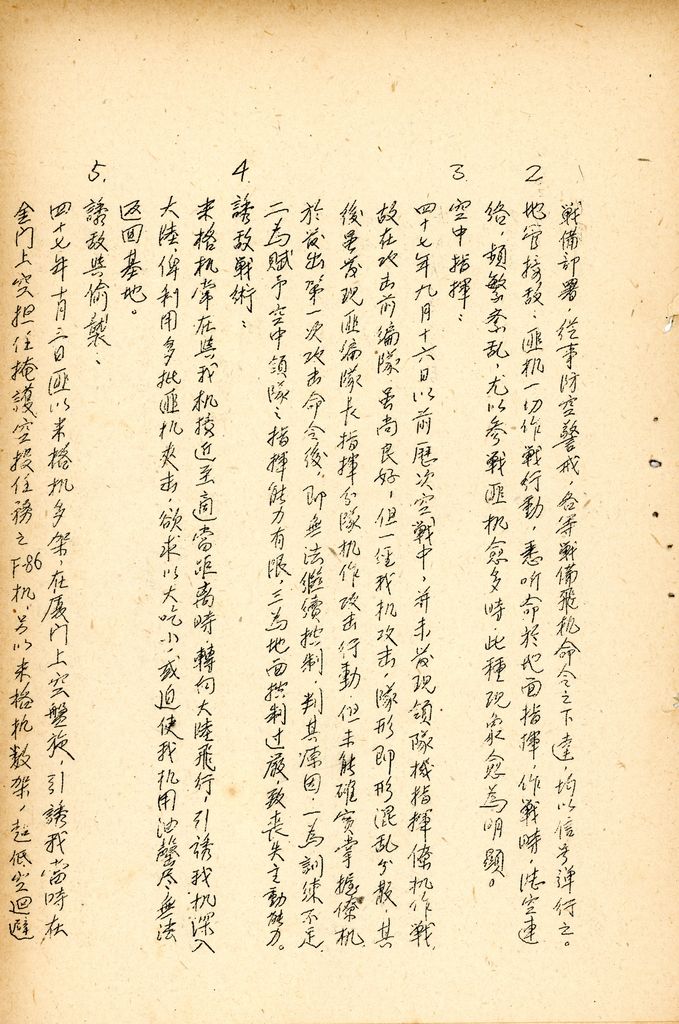 戰備部署，從事防空警戒，各等戰備飛机命令之下達，均以信号彈行之。
2. 地管接敌：匪机一切作戰行動，悉听命於地面指揮，作戰時，陸空連
絡，頻繁紊乱，尤以参戰匪机愈多時，此種現象愈為明顯。
3. 空中指揮：
四十七年九月十六日以前歷次空戰中，并未發現領隊機指揮僚机作戰，
故在攻击前編隊虽尚良好，但一経我机攻击，隊形即形混乱分散，其
後虽發現匪編隊長指揮分隊机作攻击行動，但未能確实掌握僚机，
於發出第一次攻击命令後，即無法繼續控制，判其原因，一為訓練不足，
二為賦予空中領隊之指揮能力有限，三為地面控制过嚴，致喪失主動能力。
4. 誘敌戰術：
米格机常在與我机接近至適當距离時，轉向大陸飛行，引誘我机深入
大陸，俾利用多批匪机夾击，欲求以大吃小，或迫使我机用油罄尽無法
返回基地。
5. 誘敌與偷襲：
四十七年十月三日匪以米格机多架，在厦门上空盤旋，引誘我當時在
金门上空担任掩護空投任務之F-86机，另以米格机数架，超低空迴避